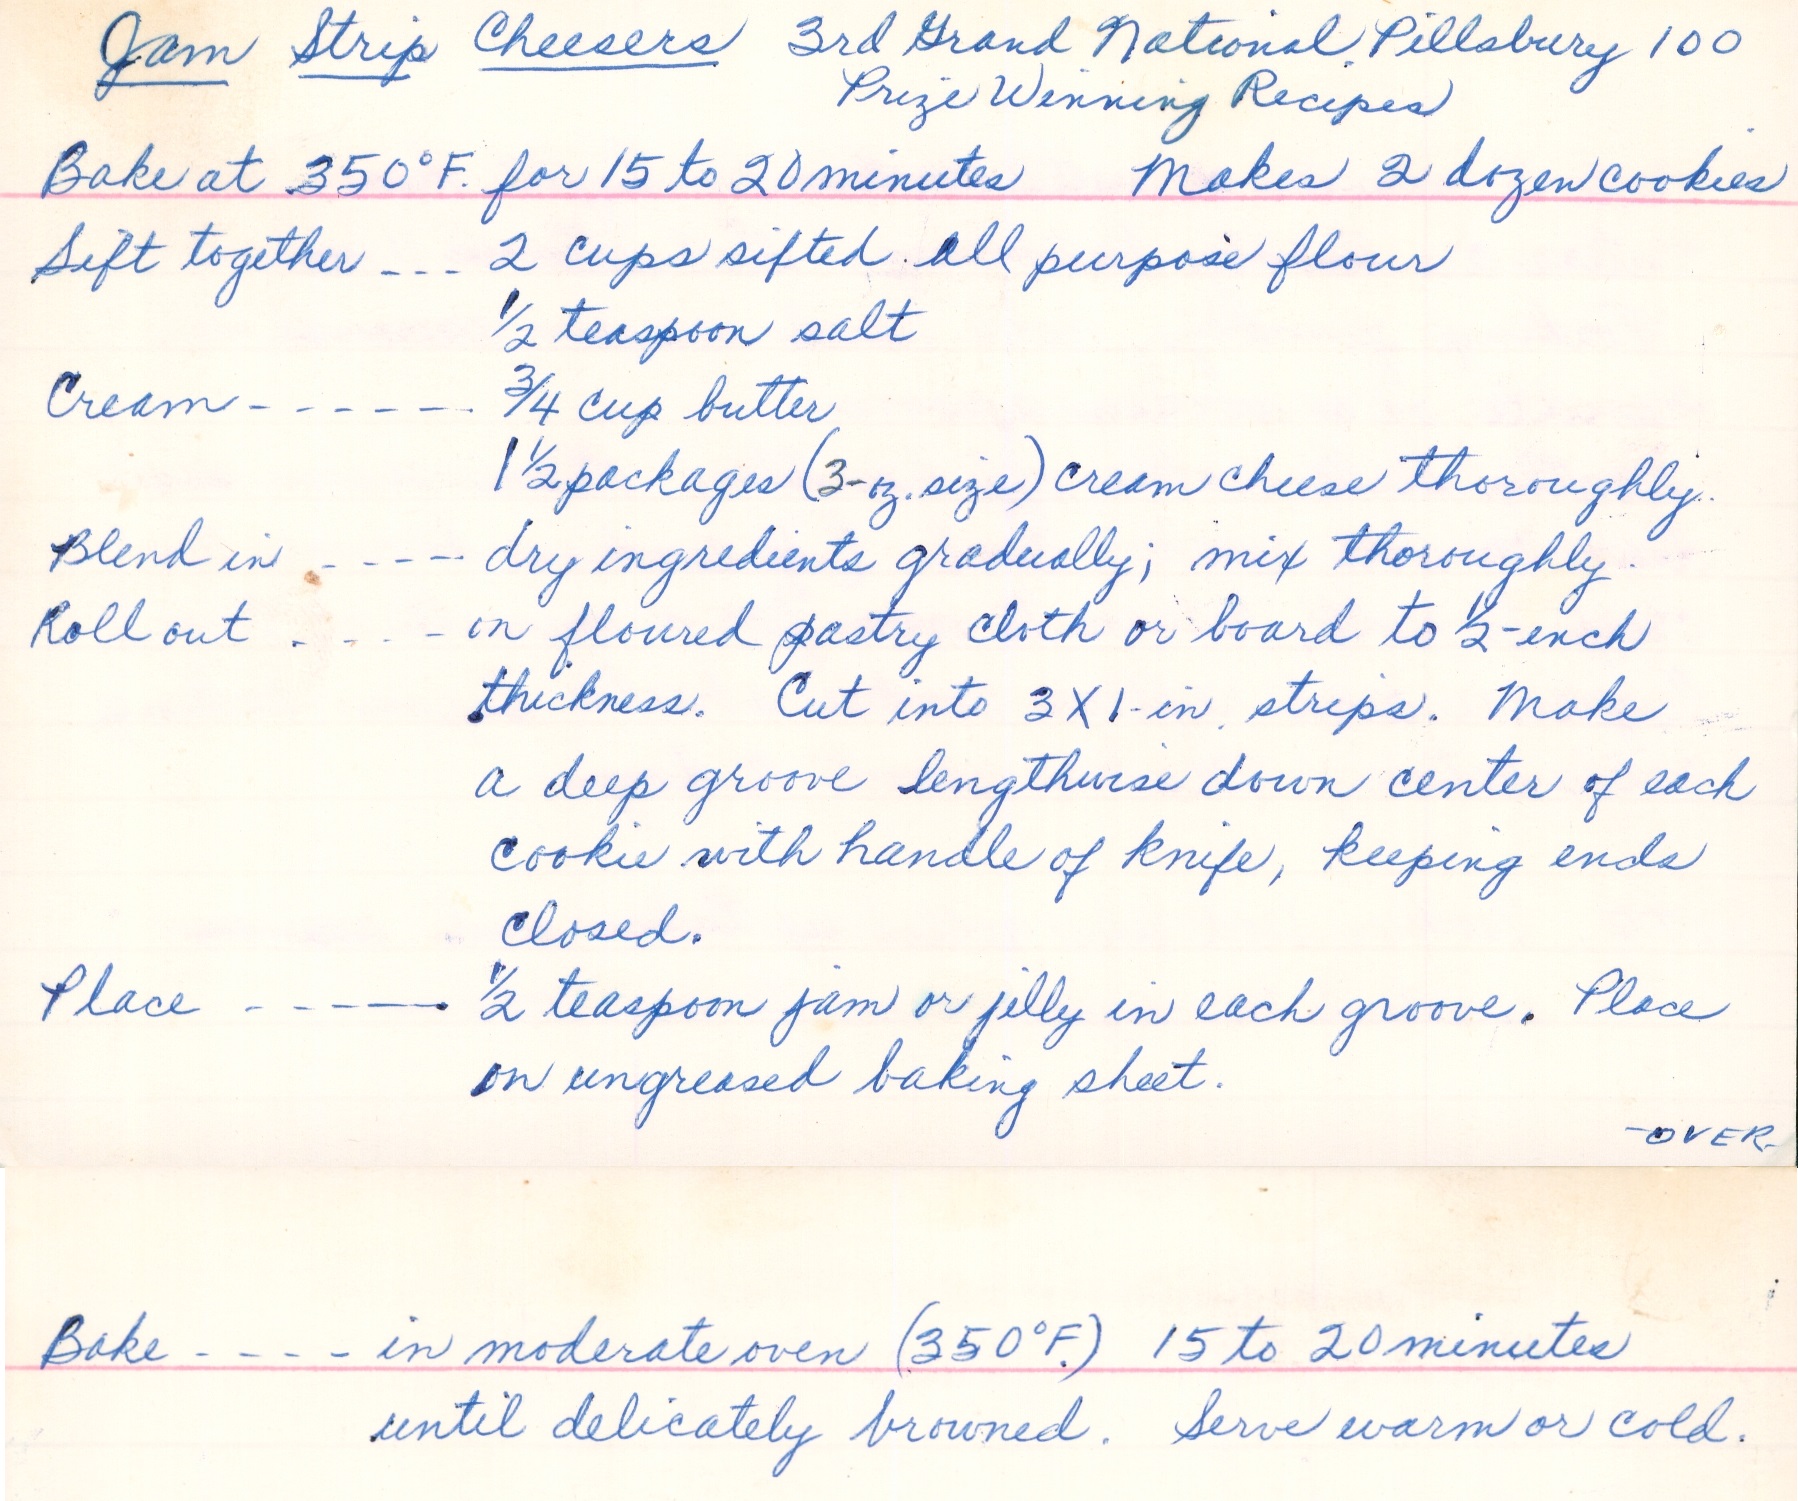 Jam Strip Cheesers 3rd Grand National Pillsbury 100
Prize Winning Recipes
Bake at 350°F. for 15 to 20 minutes Makes 2 dozen cookies
Sift together --- 2 cups sifted all purpose flour
1/2 teaspoon salt
Cream ------ 3/4 cup butter
1 1/2 packages (3-oz. size) cream cheese thoroughly.
Blend in ----- dry ingredients gradually; mix thoroughly.
Roll out ---- on floured pastry cloth or board to 1/2-inch
thickness. Cut into 3X1-in. strips. Make
a deep groove lengthwise down center of each
cookie with handle of knife, keeping ends
closed.
Place ----- 1/2 teaspoon jam or jelly in each groove. Place
on ungreased baking sheet.
-OVER-
Bake ---- in moderate oven (350°F.) 15 to 20 minutes
until delicately browned. Serve warm or cold.